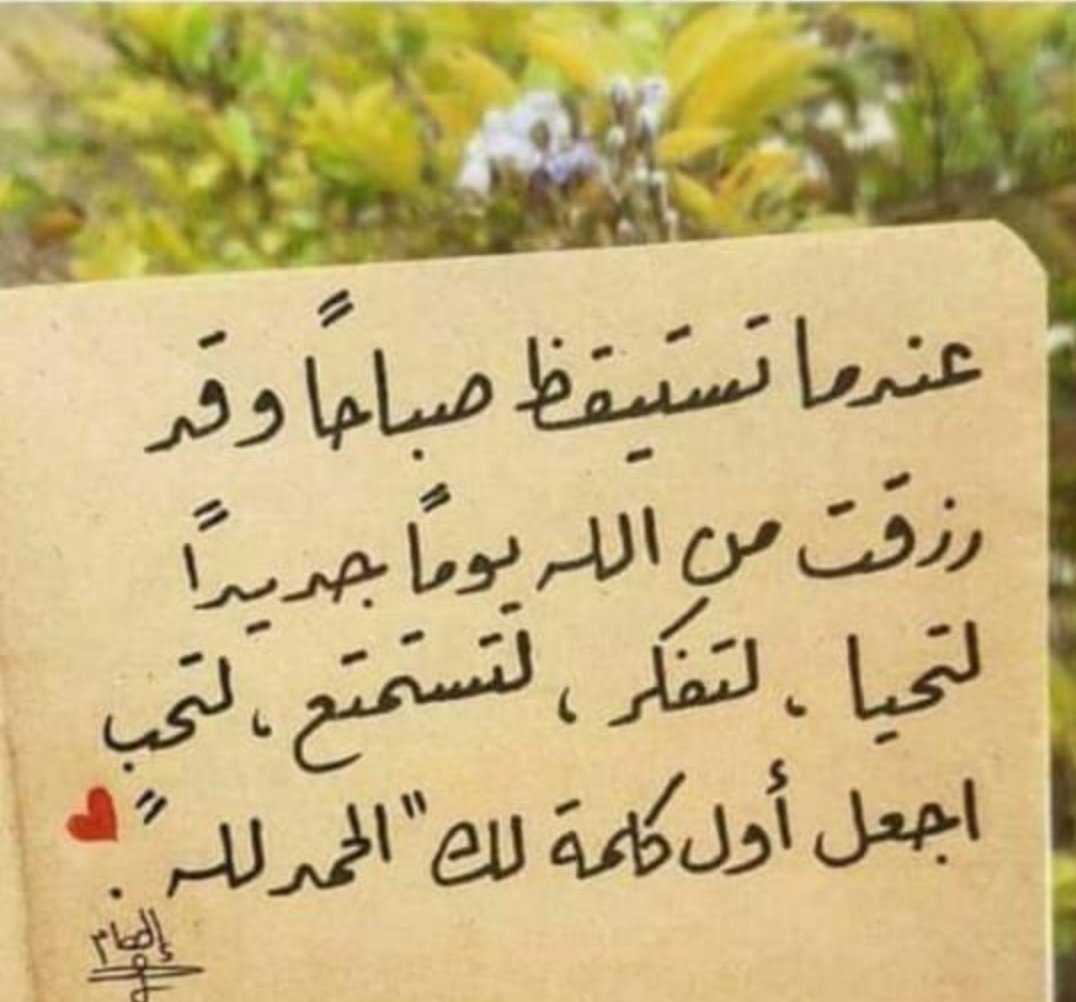 عندما تستيقظ صباحاً وقد
رزقت من الله يوماً جديداً
لتحيا ، لتفكر ، لتستمتع ، لتحب
اجعل أول كلمة لك "الحمد لله" .
إلهام